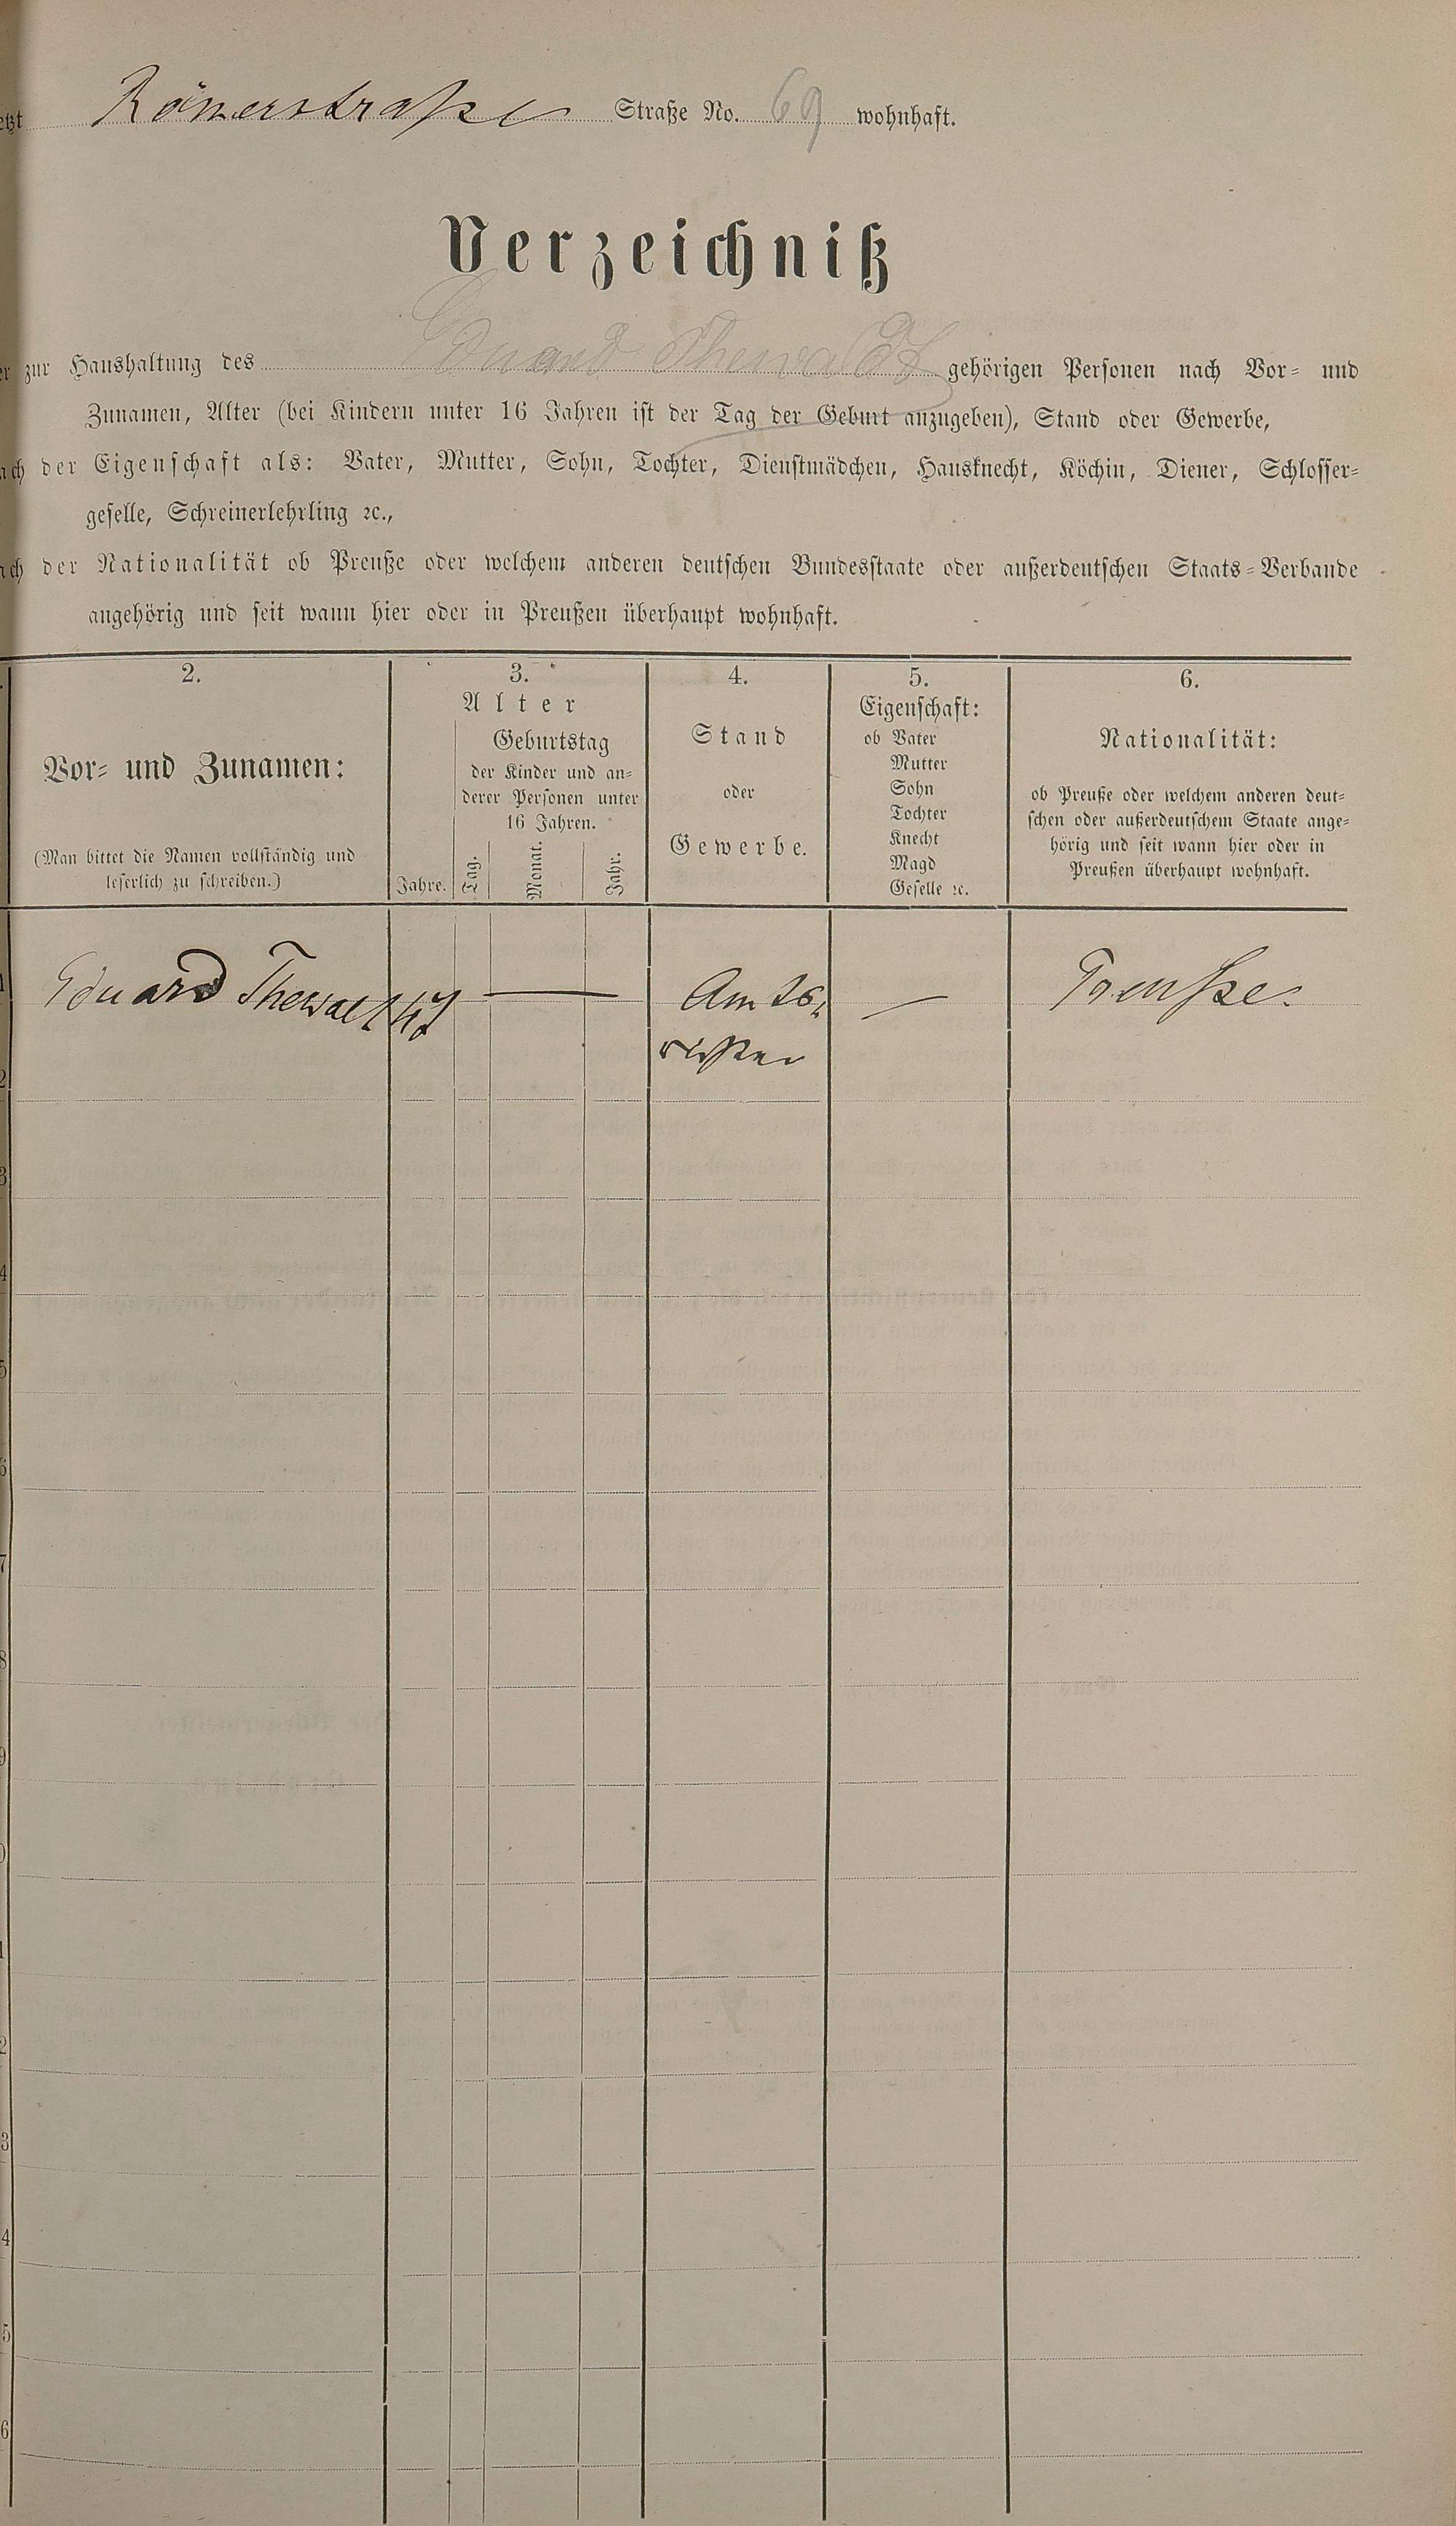 etzt Römerstraße Straße No. 69 wohnhaft.
Verzeichniß
er zur Haushaltung des Eduard Thewaldt gehörigen Personen nach Vor- und
Zunamen, Alter (bei Kindern unter 16 Jahren ist der Tag der Geburt anzugeben), Stand oder Gewerbe,
ach der Eigenschaft als: Vater, Mutter, Sohn, Tochter, Dienstmädchen, Hausknecht, Köchin, Diener, Schlosser-
geselle, Schreinerlehrling ꝛc.,
ach der Nationalität ob Preuße oder welchem anderen deutschen Bundesstaate oder außerdeutschen Staats-Verbande
angehörig und seit wann hier oder in Preußen überhaupt wohnhaft.
2.
Vor- und Zunamen:
(Man bittet die Namen vollständig und
leserlich zu schreiben.)
3.
Alter
Geburtstag
der Kinder und an-
derer Personen unter
16 Jahren.
Jahre. Tag. Monat. Jahr.
4.
Stand
oder
Gewerbe.
5.
Eigenschaft:
ob Vater
Mutter
Sohn
Tochter
Knecht
Magd
Geselle ꝛc.
6.
Nationalität:
ob Preuße oder welchem anderen deut-
schen oder außerdeutschem Staate ange-
hörig und seit wann hier oder in
Preußen überhaupt wohnhaft.
1 Eduard Thewalt — Amts — Preuße.
richter
2
3
4
5
6
7
8
9
0
1
2
3
4
5
6